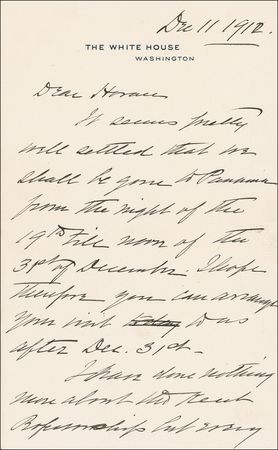 Dec 11 1912.
THE WHITE HOUSE
WASHINGTON
Dear Horace
It seems pretty
well settled that we
shall be gone to Panama
from the night of the
19th till noon of the
31st of December. I hope
therefore you can arrange
your visit to us
after Dec. 31st.
I have done nothing
more about the Kent
but every